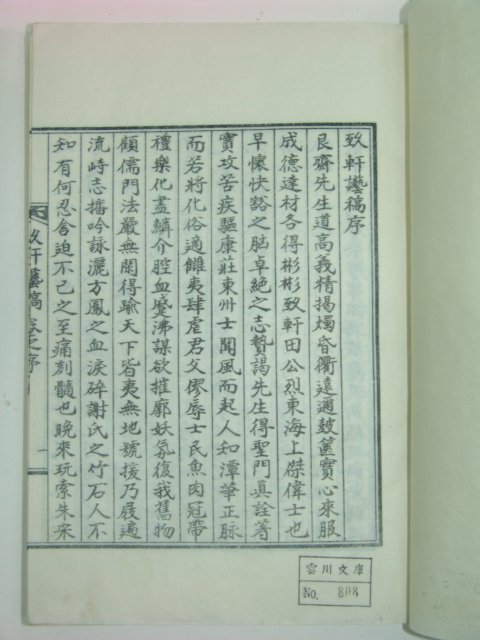 致軒讒稿序
艮齋先生道高義精揭燭昏衢遠邇鼓篋實心來服
成德達材各得彬彬致軒田公烈東海上傑偉士也
早懷快豁之胸卓絶之志贄謁先生得聖門眞詮等
實攻苦疾驅康莊東州士聞風而起人知潭華正脉
而若將化俗適雠夷肆虐君父僇辱士民魚肉冠帶
禮樂化盡鱗介腔血感沸謀欲摧廓妖氛復我舊物
顧儒門法嚴無開得踰天下皆夷無地號援乃屐遍
流峙志播吟詠灑方鳳之血淚碎謝氏之竹石人不
知有何忍舍迫不已之至痛刎髓也晩來玩索朱宋
致軒讒稿 卷之序
一
雲川文庫
No. 808